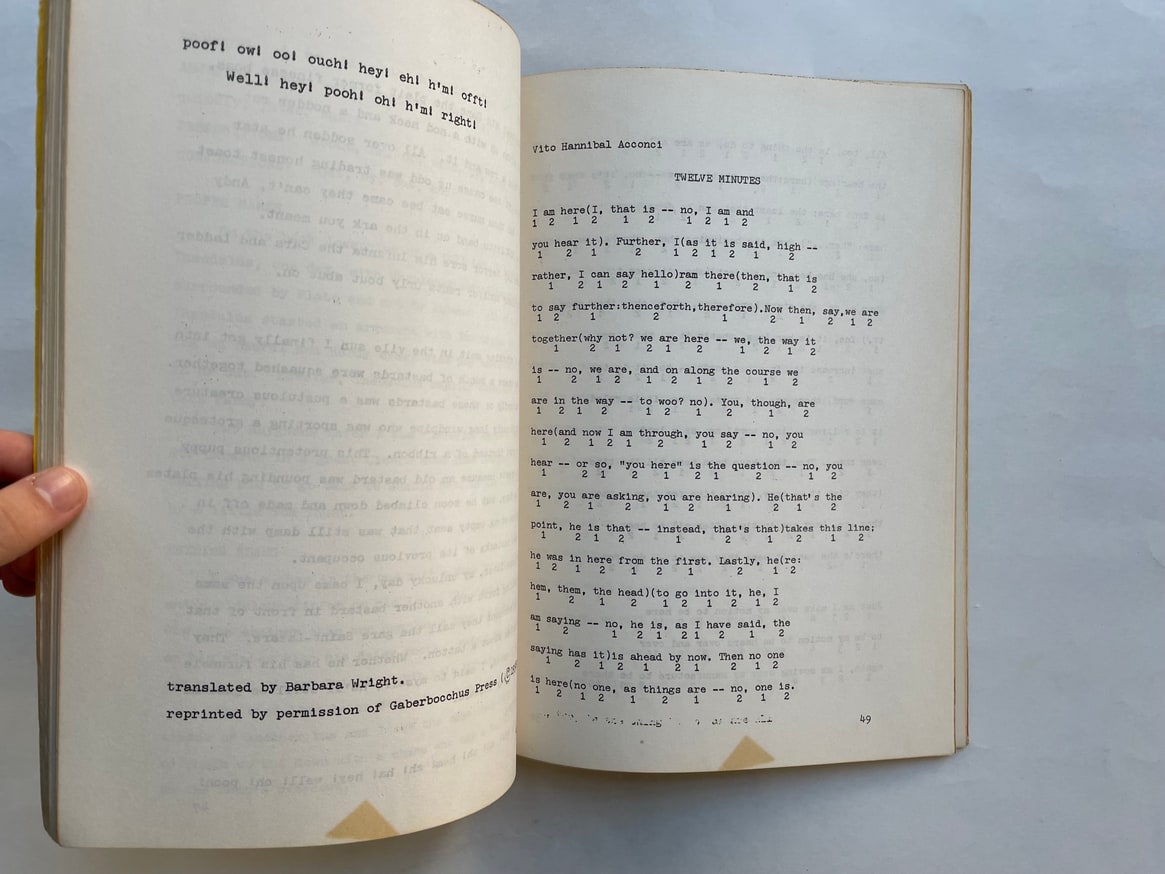 poof! ow! oo! ouch! hey! eh! h'm! offt!
Well! hey! pooh! oh! h'm! right!
translated by Barbara Wright.
reprinted by permission of Gaberbocchus Press (
Vito Hannibal Acconci
TWELVE MINUTES
I am here(I, that is -- no, I am and
1 2 1 2 1 2 1 2 1 2
you hear it). Further, I(as it is said, high --
1 2 1 2 1 2 1 2 1 2
rather, I can say hello)ram there(then, that is
1 2 1 2 1 2 1 2 1 2
to say further:thenceforth,therefore).Now then, say,we are
1 2 1 2 1 2 1 2 1 2
together(why not? we are here -- we, the way it
1 2 1 2 1 2 1 2 1 2
is -- no, we are, and on along the course we
1 2 1 2 1 2 1 2 1 2
are in the way -- to woo? no). You, though, are
1 2 1 2 1 2 1 2 1 2
here(and now I am through, you say -- no, you
1 2 1 2 1 2 1 2 1 2
hear -- or so, "you here" is the question -- no, you
1 2 1 2 1 2 1 2 1 2
are, you are asking, you are hearing). He(that's the
1 2 1 2 1 2 1 2 1 2
point, he is that -- instead, that's that)takes this line;
1 2 1 2 1 2 1 2 1 2
he was in here from the first. Lastly, he(re:
1 2 1 2 1 2 1 2 1 2
hem, them, the head)(to go into it, he, I
1 2 1 2 1 2 1 2 1 2
am saying -- no, he is, as I have said, the
1 2 1 2 1 2 1 2 1 2
saying has it)is ahead by now. Then no one
1 2 1 2 1 2 1 2 1 2
is here(no one, as things are -- no, one is.
1 2 1 2 1 2 1 2 1 2
49